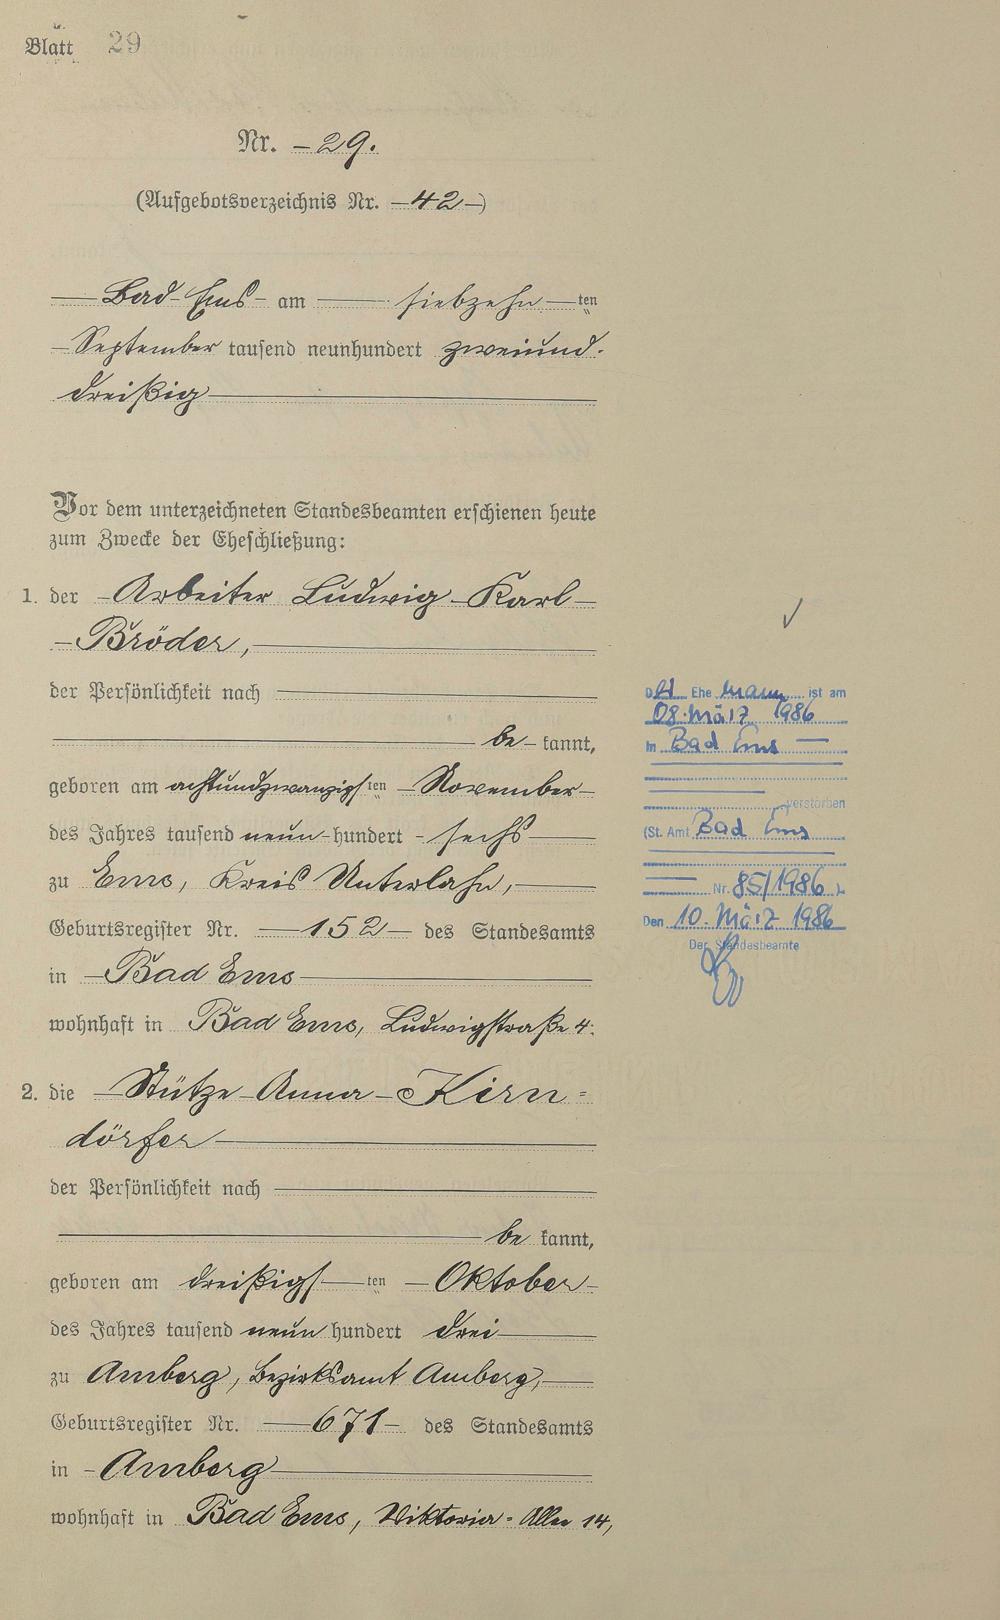 Blatt 29
Nr. – 29.
(Aufgebotsverzeichnis Nr. – 42 –)
Bad Ems – am siebzehn – ten
– September tausend neunhundert zweiund-
dreißig
Vor dem unterzeichneten Standesbeamten erschienen heute
zum Zwecke der Eheschließung:
1. der – Arbeiter Ludwig – Karl –
– Bröder,
der Persönlichkeit nach
be – kannt,
geboren am achtundzwanzigsten – November –
des Jahres tausend neun – hundert – sechs
zu Ems, Kreis Unterlahn,
Geburtsregister Nr. – 152 – des Standesamts
in – Bad Ems
wohnhaft in Bad Ems, Ludwigstraße 4.
2. die – Stütze – Anna – Kirn-
dörfer
der Persönlichkeit nach
be kannt,
geboren am dreißigs – ten – Oktober –
des Jahres tausend neun hundert drei
zu Amberg, Bezirksamt Amberg,
Geburtsregister Nr. – 671 – des Standesamts
in – Amberg
wohnhaft in Bad Ems, Viktoria-Allee 14,
Der Ehe mann ist am
08. März 1986
in Bad Ems –
verstorben
(St. Amt Bad Ems
Nr. 85/1986 ).
Den 10. März 1986
Der Standesbeamte